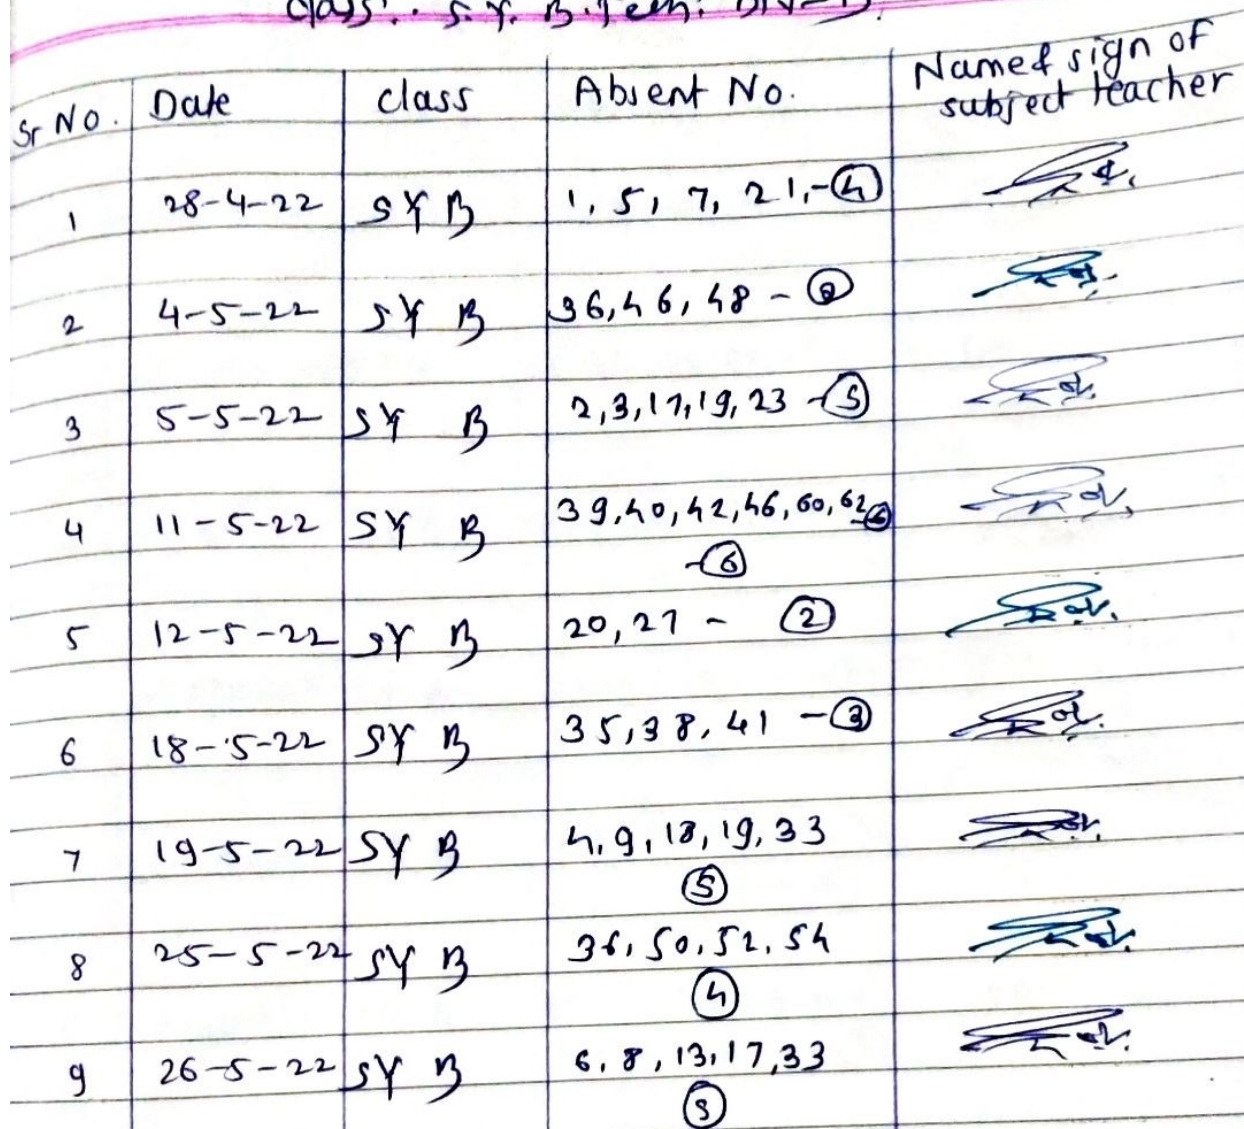 Class: S.Y. B.Tech. Div-B.
Sr No. Date class Absent No. Name & sign of
subject teacher
1 28-4-22 SY B 1, 5, 7, 21, - 4
2 4-5-22 SY B 36, 46, 48 - 3
3 5-5-22 SY B 2, 3, 17, 19, 23 - 5
4 11-5-22 SY B 39, 40, 42, 46, 60, 62 6
- 6
5 12-5-22 SY B 20, 27 - 2
6 18-5-22 SY B 35, 38, 41 - 3
7 19-5-22 SY B 4, 9, 18, 19, 33
5
8 25-5-22 SY B 36, 50, 52, 54
4
9 26-5-22 SY B 6, 8, 13, 17, 33
5